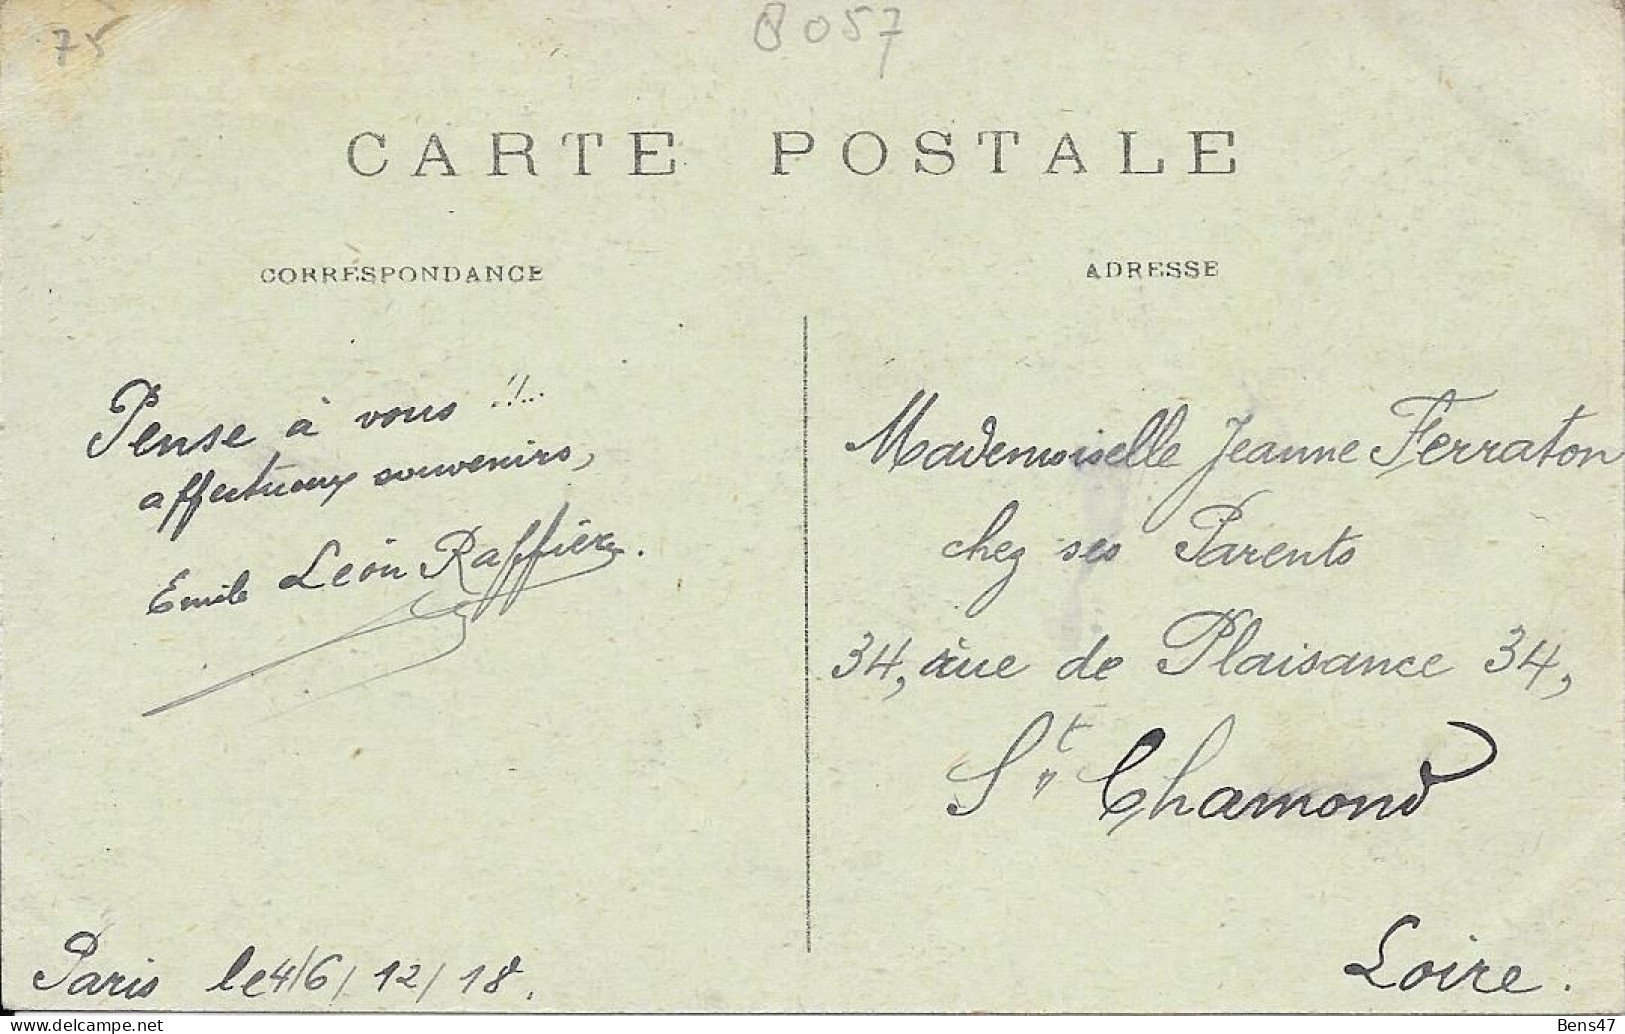 75
8057
CARTE POSTALE
CORRESPONDANCE
ADRESSE
Pense à vous !!...
affectueux souvenirs,
Emile Léon Raffière.
Paris le 4/6/12/18.
Mademoiselle Jeanne Ferraton
chez ses Parents
34, rue de Plaisance 34,
St Chamond
Loire.
Bens47